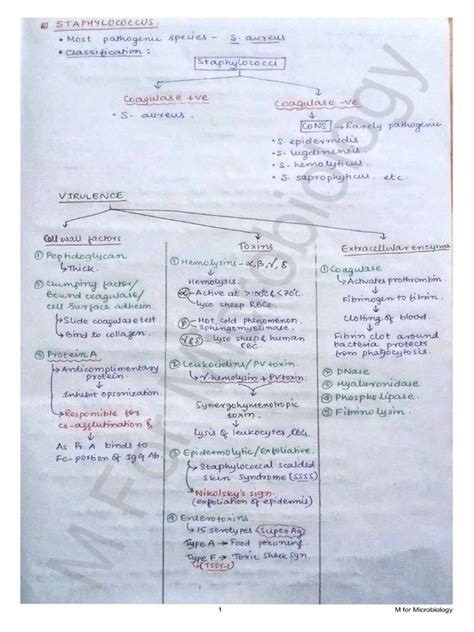 STAPHYLOCOCCUS
• Most pathogenic species - S. aureus
• Classification:
Staphylococci
Coagulase +ve
• S. aureus
Coagulase -ve
CoNS → Rarely pathogenic
• S. epidermidis
• S. lugdinensis
• S. hemolyticus
• S. saprophyticus. etc
VIRULENCE
Cell wall factors
① Peptidoglycan
↳ Thick.
② Clumping factor/
Bound coagulase/
cell surface adhesin
↳ Slide coagulase test
↳ Bind to collagen.
③ Protein A
↳ Anticomplimentary
protein
↓
Inhibit opsonization
↳ Responsible for
co-agglutination
As Pr. A binds to
Fc-portion of IgG Ab.
Toxins
① Hemolysins - α, β, γ, δ
Hemolysis.
α - Active at >100°C & <70°C.
lyse sheep RBCs.
β - Hot cold phenomenon
Sphingomyelinase.
γ & δ - lyse sheep & human
RBC.
② Leukocidins/PV toxin.
↳ γ-hemolysin + PV toxin.
Synergohymenotropic
toxin
↓
Lysis of leukocytes, RBCs.
③ Epidermolytic/Exfoliative.
↳ Staphylococcal scalded
skin Syndrome (SSSS)
↳ Nikolsky's sign.
(exfoliation of epidermis)
④ Enterotoxins
↳ 15 serotypes Super Ag
Type A → Food poisoning
Type F → Toxic Shock Syn
(TSST-1)
Extracellular enzymes
① Coagulase
↳ Activates prothrombin
↓
Fibrinogen to fibrin.
↓
Clotting of blood
↓
Fibrin clot around
bacteria protects
from phagocytosis.
② DNase
③ Hyaluronidase
④ Phospholipase.
⑤ Fibrinolysin.
M For Microbiology
1
M for Microbiology